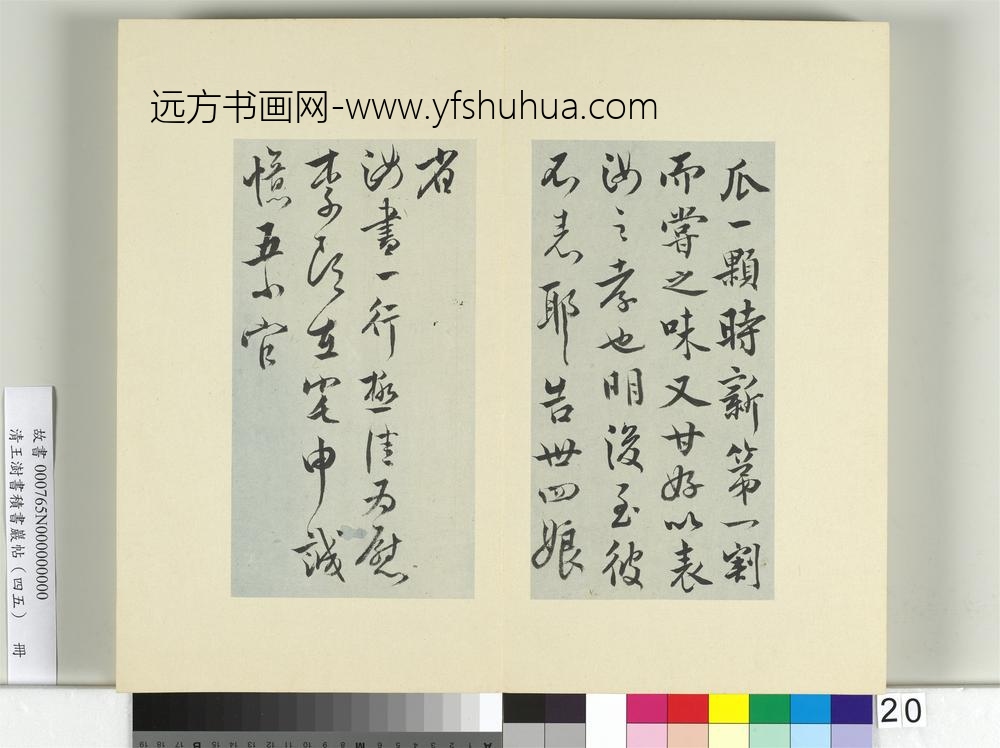 远方书画网-www.yfshuhua.com
瓜一顆時新第一割
而嘗之味又甘好以表
汝之孝也明後至彼
不悉耶告世四娘
省
汝書一行極佳為慰
李郎在宅申誠
憶五小官
故書 000765N000000000
清王澍書積書巖帖（四五） 冊
20